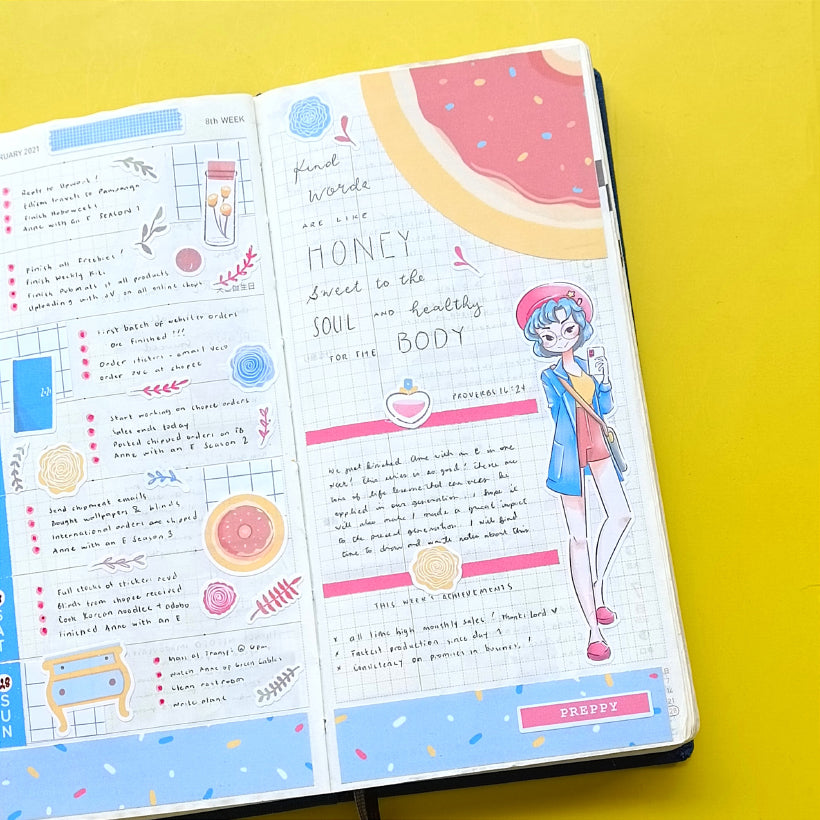 RUARY 2021
8th WEEK
Reply to Upwork!
Anne with an E SEASON 1
Finish all Freebies!
Finish Weekly Kit
Finish all products
Uploading with on all online shops
First batch of webister orders
are finished!!!
Order stickers - email
Order at shopee
Start working on shopee orders
Sales ends today
Posted shipped orders on IG
Anne with an E Season 2
Send shipment emails
Bought wallpapers & blinds
International orders are shipped
Anne with an E Season 3
SAT
Full stocks of stickers rcvd
Blinds from shopee received
Cook Korean noodles + adobo
Finished Anne with an E
28
SUN
Mass at
Watch Anne of Green Gables
Clean restroom
Write plans
Kind
Words
ARE LIKE
HONEY
Sweet to the
SOUL AND healthy
FOR THE BODY
PROVERBS 16:24
We just finished Anne with an E in one
week! This series is so good! There are
tons of life lessons that can be
applied in our generation. I hope it
will also make a great impact
to the present generation. I will find
time to draw and write notes about this
THIS WEEK'S ACHIEVEMENTS
x all time high monthly sales! Thanks Lord ♥
x Fastest production since day 1
x Consistency on promises in business!
PREPPY